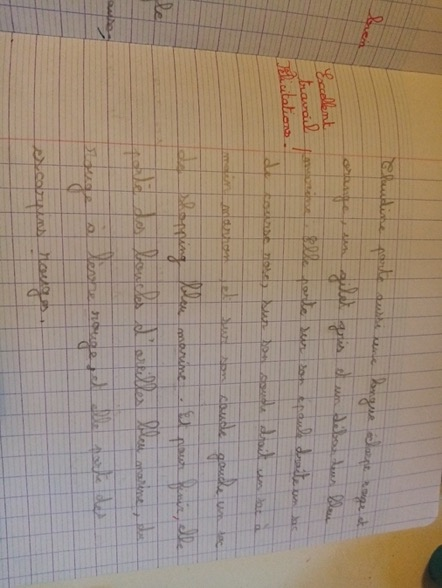 Bien
Excellent
travail!
Félicitations.
Claudine porte aussi une longue écharpe rouge et
orange, un gilet gris et un débardeur bleu
marine. Elle porte sur son épaule droite un sac
de course rose, sur son coude droit un sac à
main marron et sur son coude gauche un sac
de shopping bleu marine. Et pour finir, elle
porte des boucles d'oreilles bleu marine, du
rouge à lèvre rouge, et elle porte des
escarpins rouges.
le